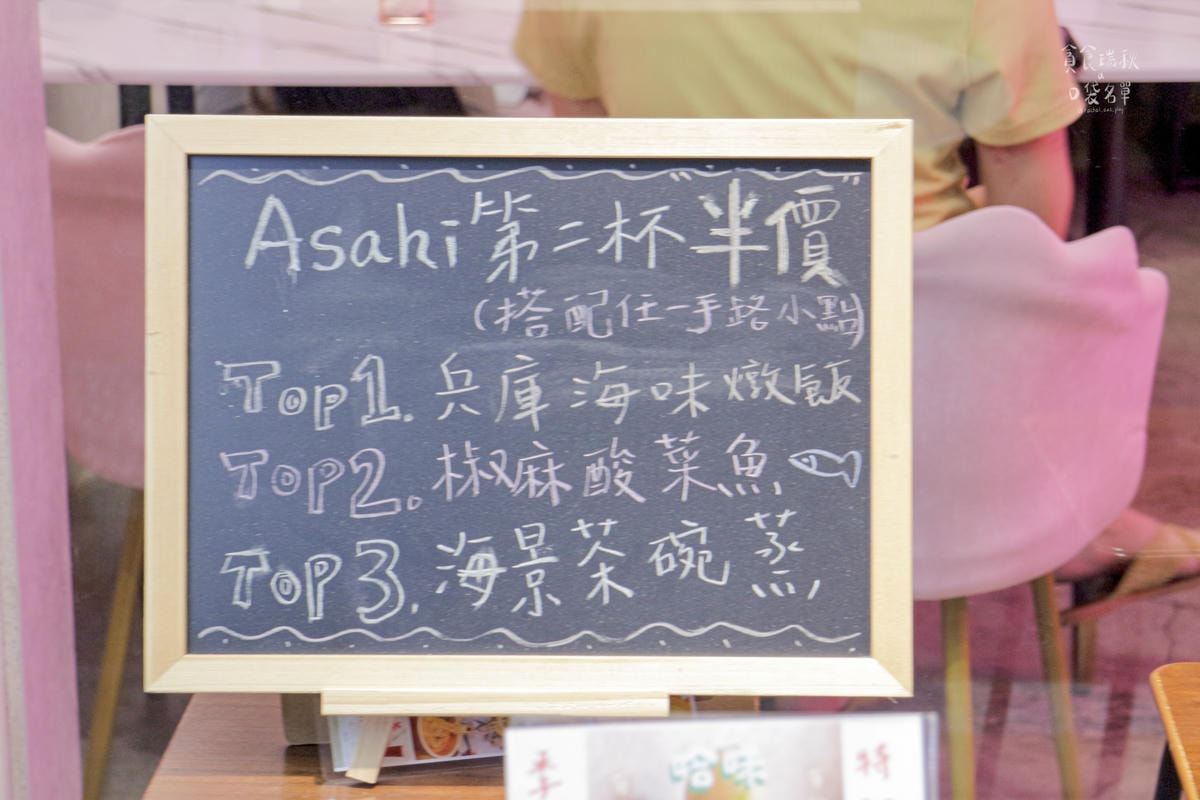 貪食瑞秋
の
口袋名單
Asahi 第二杯"半價"
(搭配任一手路小點)
Top1. 兵庫海味燉飯
Top2. 椒麻酸菜魚
Top3. 海景茶碗蒸
季
哈味
特